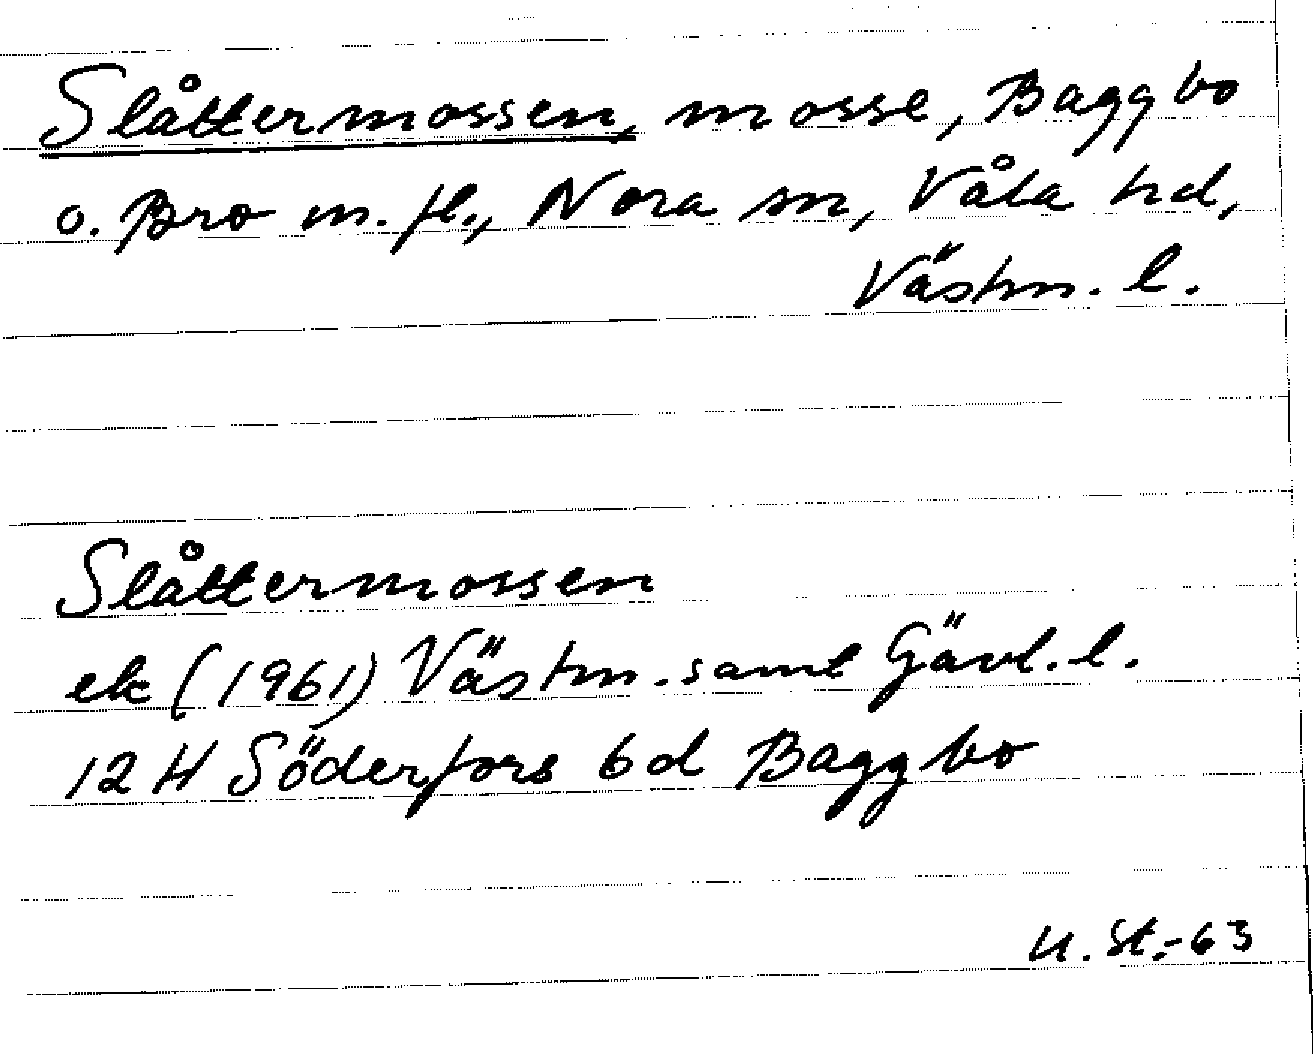 Slåttermossen, mosse, Baggbo
o. Bro m. fl., Nora sn, Våla hd,
Västm. l.
Slåttermossen
ek (1961) Västm. samt Gävl. l.
12 H Söderfors 6d Baggbo
U. St.-63